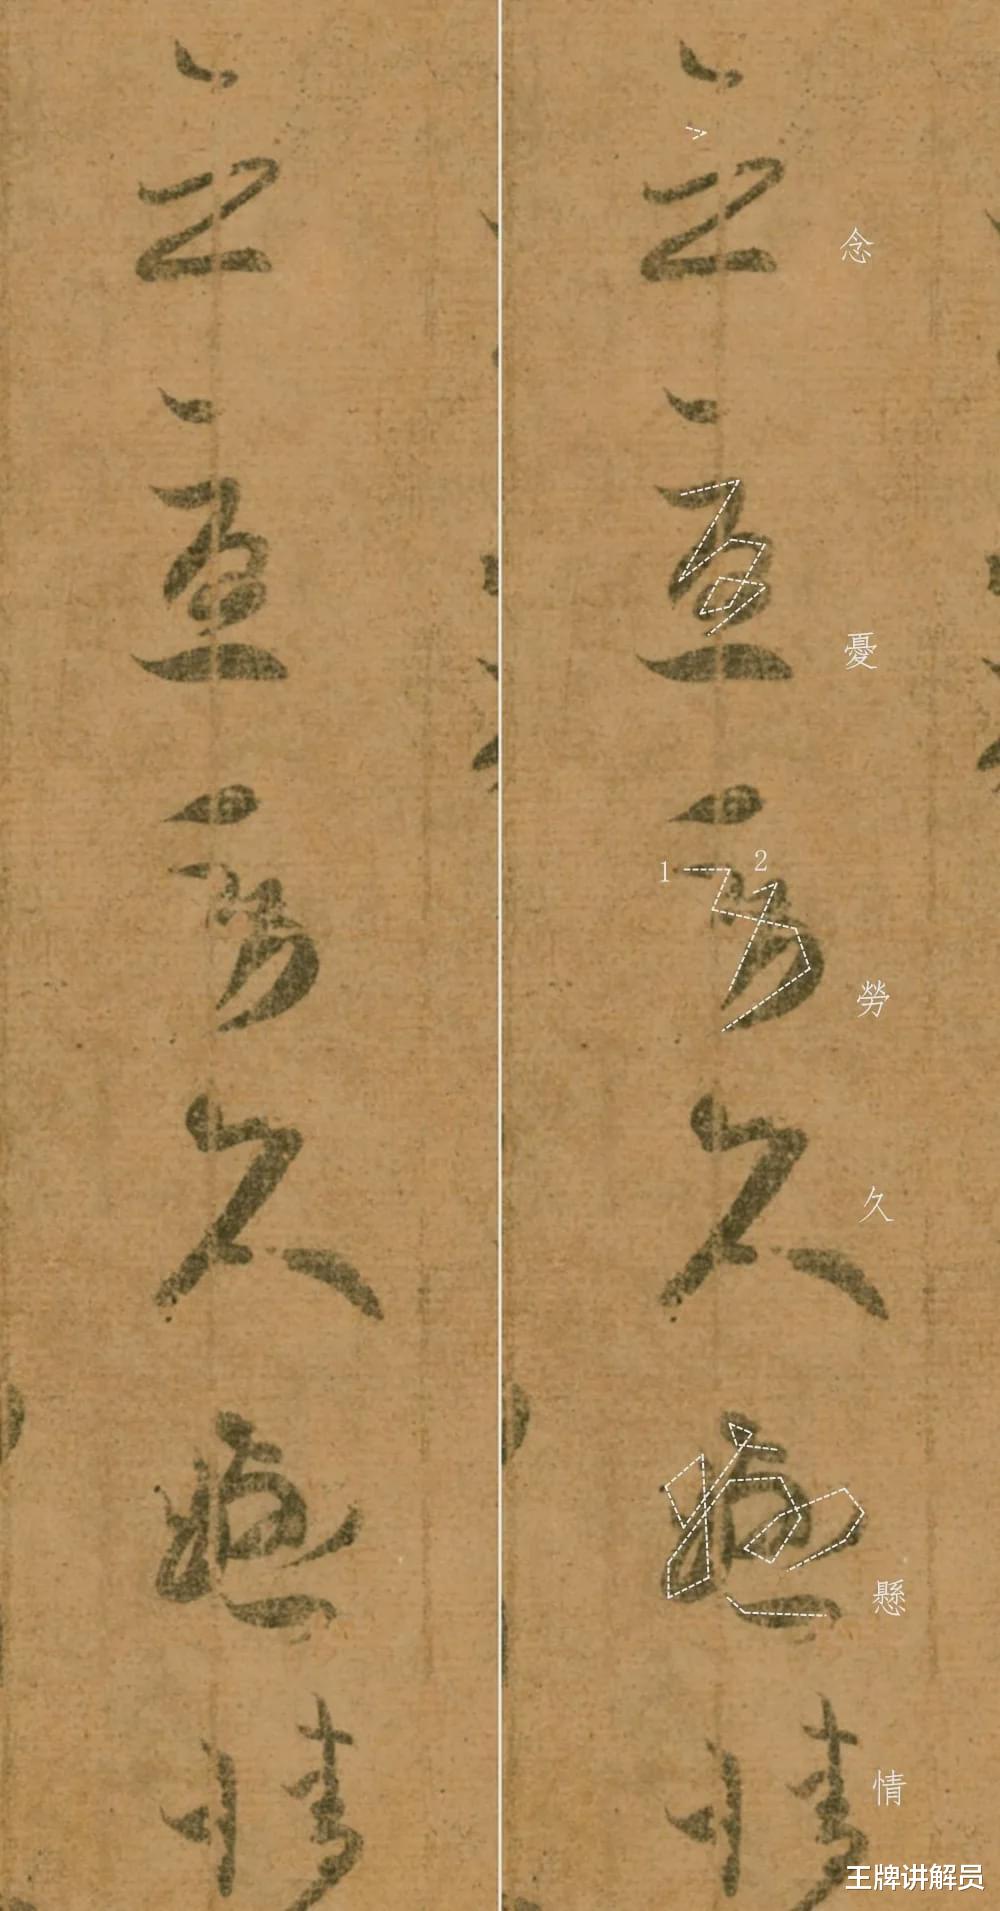 念
憂
1 2
勞
久
懸
情
王牌讲解员